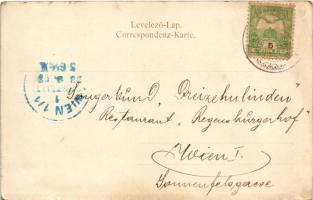 Levelező-Lap.
Correspondenz-Karte.
5
WIEN 1/1
1
Sängerbund "Dreizehnlinden"
Restaurant "Regensburgerhof"
Wien I.
Sonnenfelsgasse